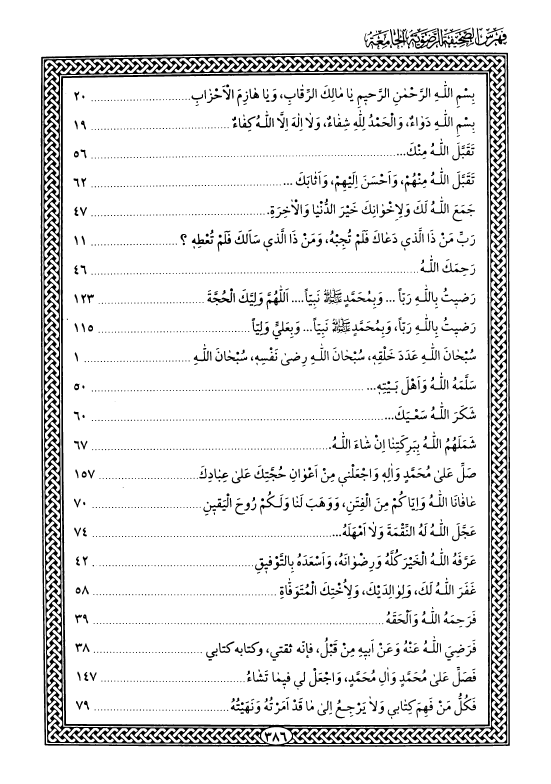 فهرس الصحيفة الرضوية الجامعة
بِسْمِ اللّٰهِ الرَّحْمٰنِ الرَّحيمِ يٰا مٰالِكَ الرِّقٰابِ، وَيٰا هٰازِمَ الْاَحْزٰابِ ٢٠
بِسْمِ اللّٰهِ دَوٰاءٌ، وَالْحَمْدُ لِلّٰهِ شِفٰاءٌ، وَلاٰ اِلٰهَ اِلَّا اللّٰهُ كِفٰاءٌ ١٩
تَقَبَّلَ اللّٰهُ مِنْكَ... ٥٦
تَقَبَّلَ اللّٰهُ مِنْهُمْ، وَاَحْسَنَ اِلَيْهِمْ، وَاَثٰابَكَ ... ٦٢
جَمَعَ اللّٰهُ لَكَ وَلِاِخْوٰانِكَ خَيْرَ الدُّنْيٰا وَالْاٰخِرَةِ. ٤٧
رَبِّ مَنْ ذَا الَّذي دَعٰاكَ فَلَمْ تُجِبْهُ، وَمَنْ ذَا الَّذي سَاَلَكَ فَلَمْ تُعْطِهِ ؟ ١١
رَحِمَكَ اللّٰهُ ٤٦
رَضيتُ بِاللّٰهِ رَبّاً ... وَبِمُحَمَّدٍ ﷺ نَبِيّاً .... اَللّٰهُمَّ وَلِيُّكَ الْحُجَّةَ ١٢٣
رَضيتُ بِاللّٰهِ رَبّاً، وَبِمُحَمَّدٍ ﷺ نَبِيّاً... وَبِعَلِيٍّ وَلِيّاً ١١٥
سُبْحٰانَ اللّٰهِ عَدَدَ خَلْقِهِ، سُبْحٰانَ اللّٰهِ رِضىٰ نَفْسِهِ، سُبْحٰانَ اللّٰهِ ١
سَلَّمَهُ اللّٰهُ وَاَهْلَ بَيْتِهِ... ٥٠
شَكَرَ اللّٰهُ سَعْيَكَ... ٦٠
شَمَلَهُمُ اللّٰهُ بِبَرَكَتِنٰا اِنْ شٰاءَ اللّٰهُ. ٦٧
صَلِّ عَلىٰ مُحَمَّدٍ وَاٰلِهِ وَاجْعَلْني مِنْ اَعْوٰانِ حُجَّتِكَ عَلىٰ عِبٰادِكَ ١٥٧
عٰافٰانَا اللّٰهُ وَاِيّٰاكُمْ مِنَ الْفِتَنِ، وَوَهَبَ لَنٰا وَلَكُمْ رُوحَ الْيَقينِ ٧٠
عَجَّلَ اللّٰهُ لَهُ النَّقْمَةَ وَلاٰ اَمْهَلَهُ... ٧٤
عَرَّفَهُ اللّٰهُ الْخَيْرَ كُلَّهُ وَرِضْوٰانَهُ، وَاَسْعَدَهُ بِالتَّوْفيقِ ٤٢
غَفَرَ اللّٰهُ لَكَ، وَلِوٰالِدَيْكَ، وَلِاُخْتِكَ الْمُتَوَفّٰاةِ ٥٨
فَرَحِمَهُ اللّٰهُ وَاَلْحَقَهُ ٣٩
فَرَضِيَ اللّٰهُ عَنْهُ وَعَنْ اَبيهِ مِنْ قَبْلُ، فَاِنَّه ثقتي، وكتابه كتابي ٣٨
فَصَلِّ عَلىٰ مُحَمَّدٍ وَاٰلِ مُحَمَّدٍ، وَاجْعَلْ لي فيمٰا تَشٰاءُ ١٤٧
فَكُلُّ مَنْ فَهِمَ كِتٰابي وَلاٰ يَرْجِعُ اِلىٰ مٰا قَدْ اَمَرْتُهُ وَنَهَيْتُهُ ٧٩
٣٨٦